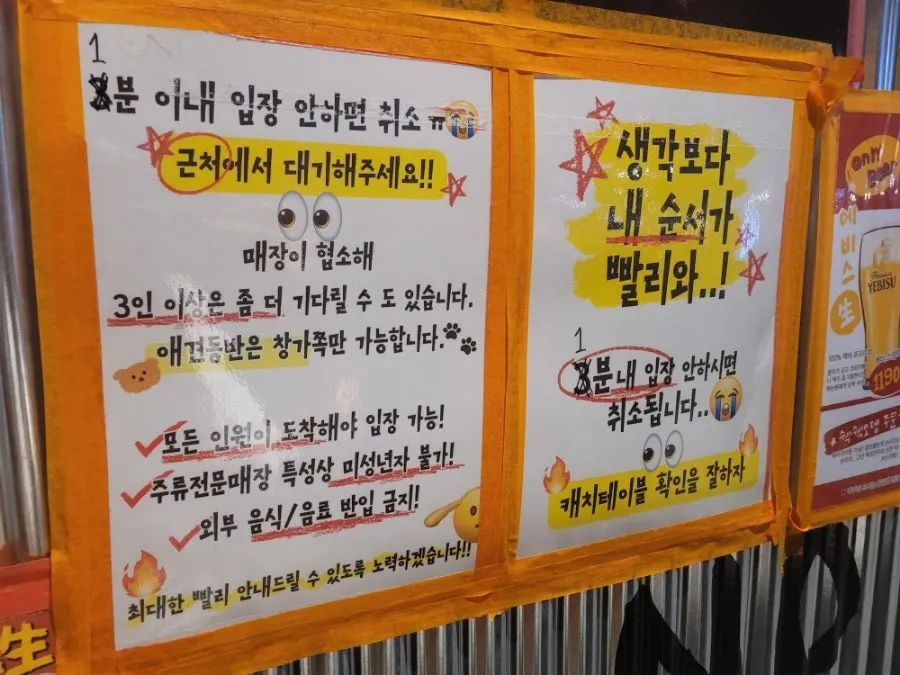 1
분 이내 입장 안하면 취소 ㅠ
근처에서 대기해주세요!!
매장이 협소해
3인 이상은 좀 더 기다릴 수 도 있습니다.
애견동반은 창가쪽만 가능합니다.
모든 인원이 도착해야 입장 가능!
주류전문매장 특성상 미성년자 불가!
외부 음식/음료 반입 금지!
최대한 빨리 안내드릴 수 있도록 노력하겠습니다!!
생각보다
내 순서가
빨리와..!
1
분내 입장 안하시면
취소됩니다..
캐치테이블 확인을 잘하자
only
에비스
生
YEBISU
1190
生